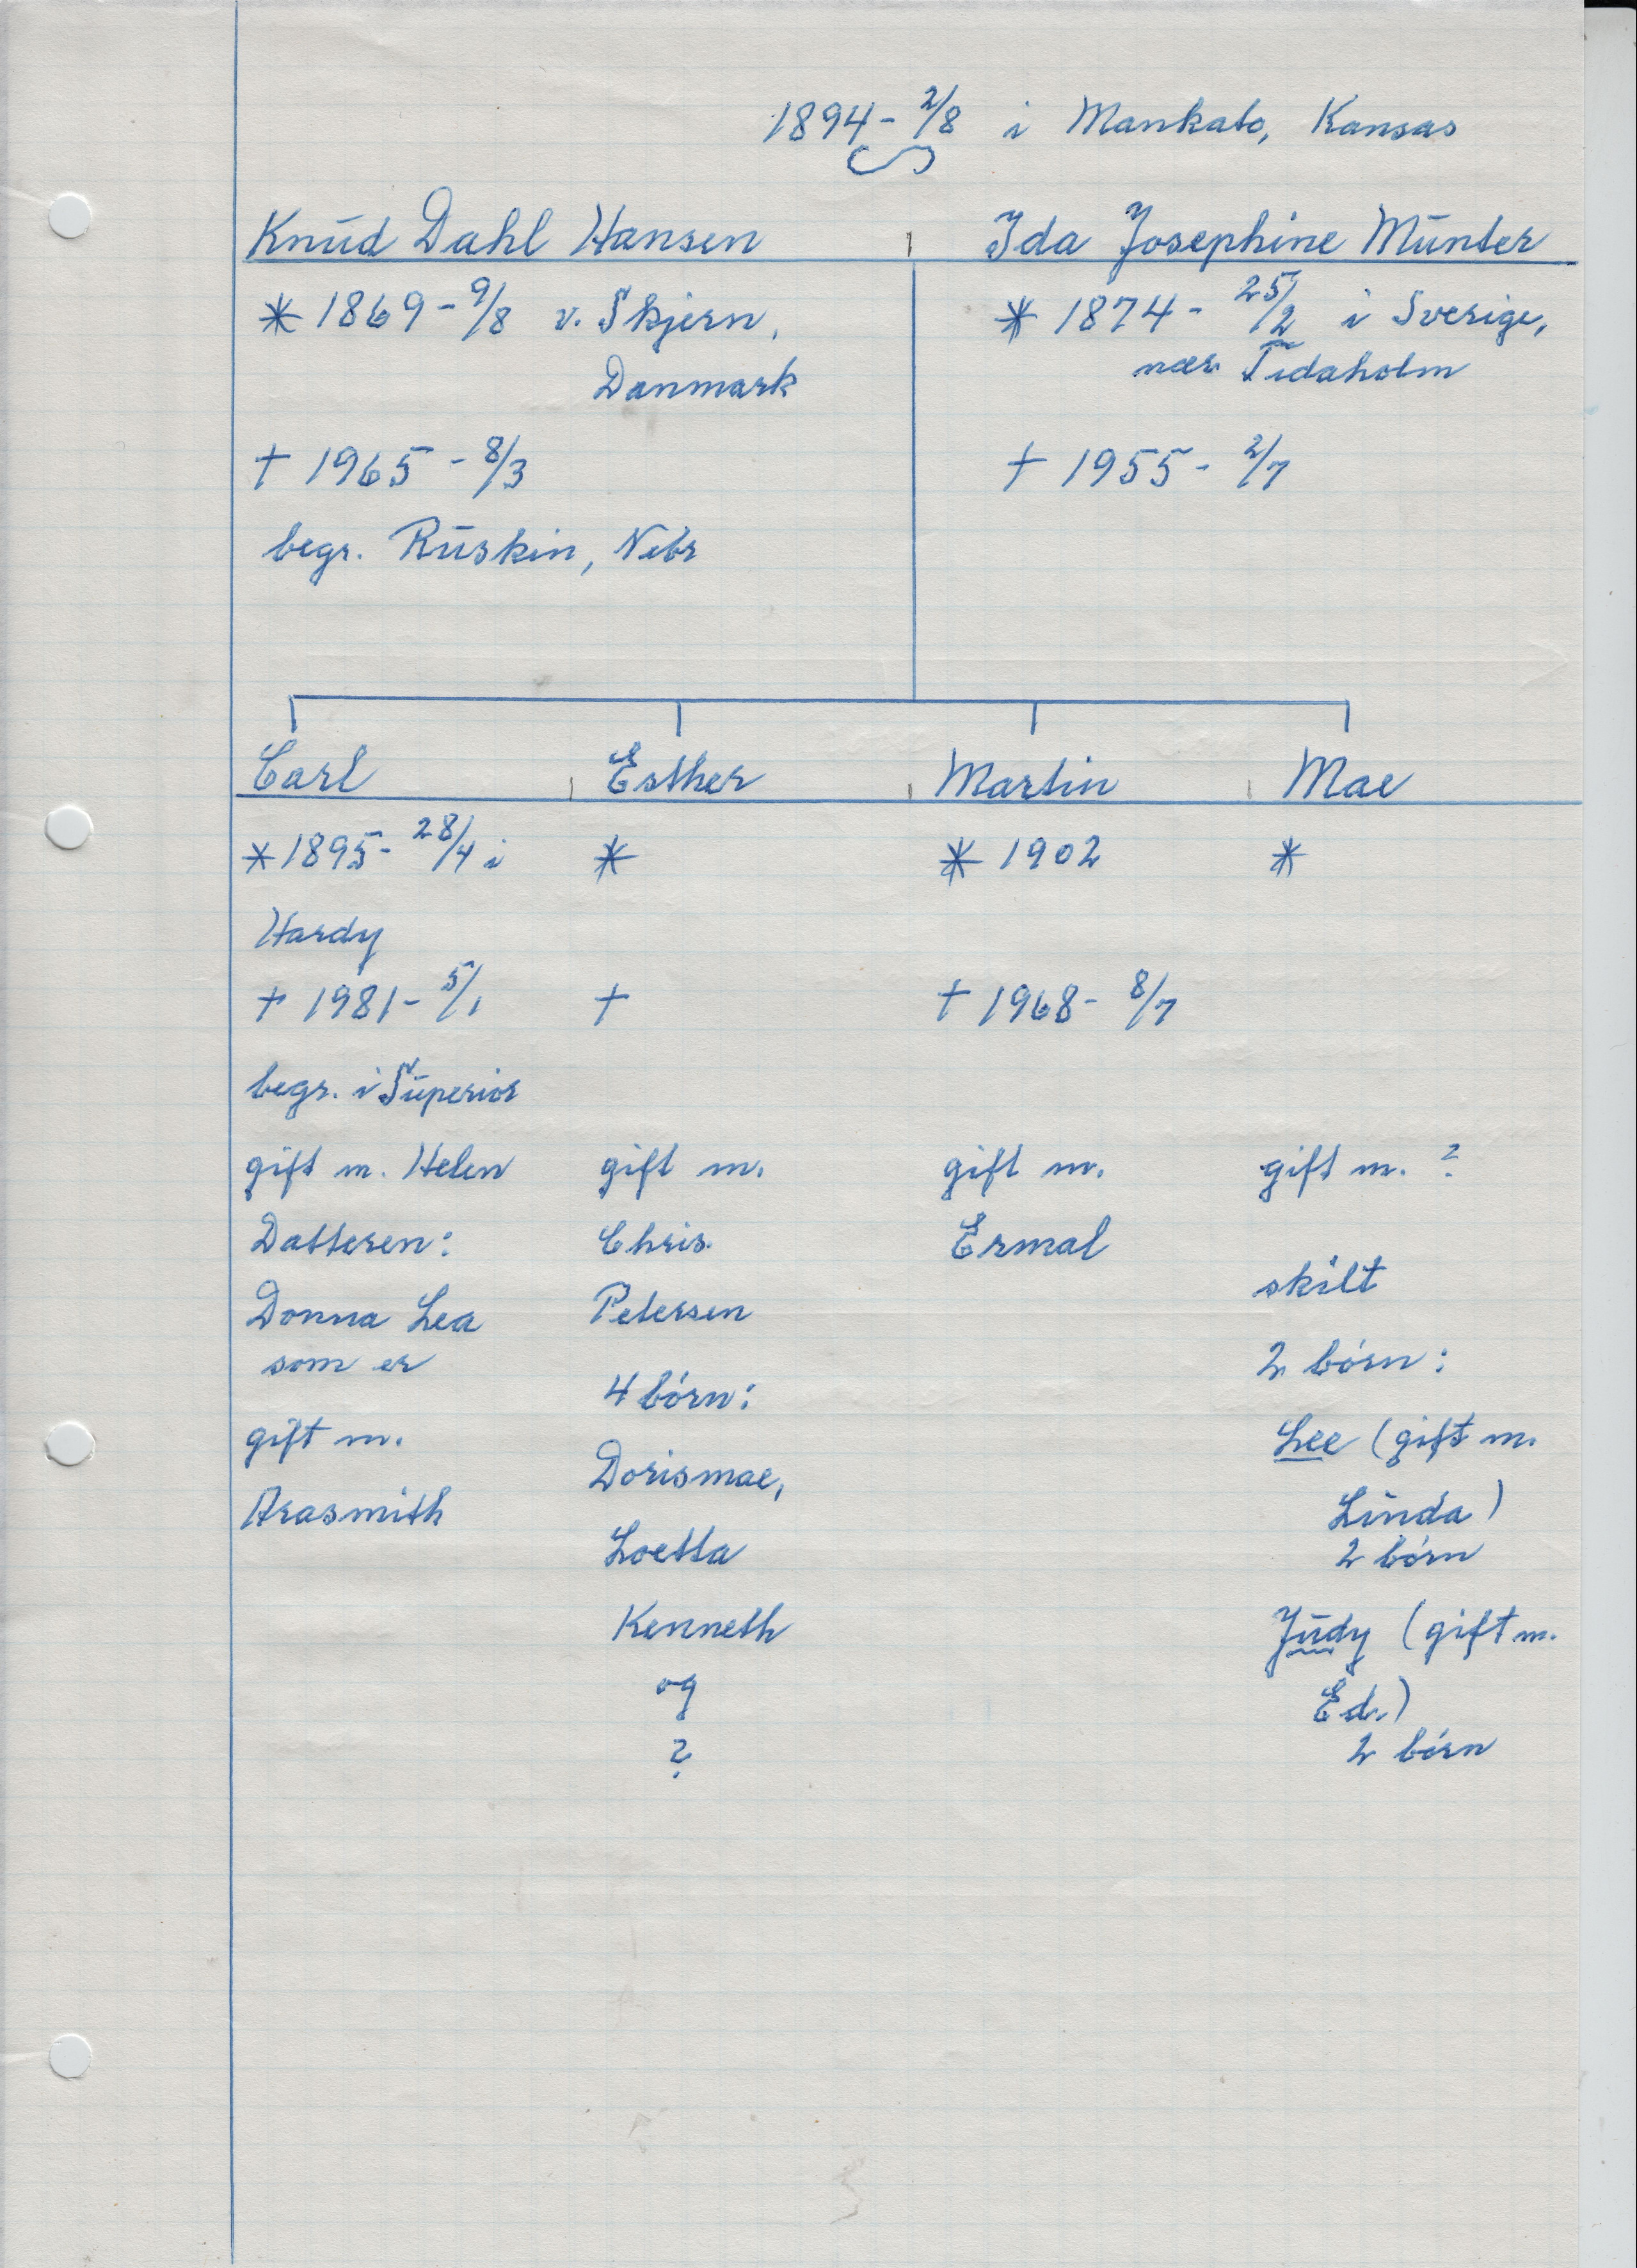 1894 - 2/8 i Mankato, Kansas
Knud Dahl Hansen
Ida Josephine Munter
* 1869 - 9/8 v. Skjern,
Danmark
† 1965 - 8/3
begr. Ruskin, Nebr
* 1874 - 25/2 i Sverige,
nær Tidaholm
† 1955 - 2/7
Carl
* 1895 - 28/4 i
Hardy
† 1981 - 5/1
begr. i Superior
gift m. Helen
Datteren:
Donna Lea
som er
gift m.
Arasmith
Esther
*
†
gift m.
Chris.
Petersen
4 børn:
Dorismae,
Loetta
Kenneth
og
?
Martin
* 1902
† 1968 - 8/7
gift m.
Ermal
Mae
*
gift m. ?
skilt
2 børn:
Lee (gift m.
Linda)
2 børn
Judy (gift m.
Ed.)
2 børn